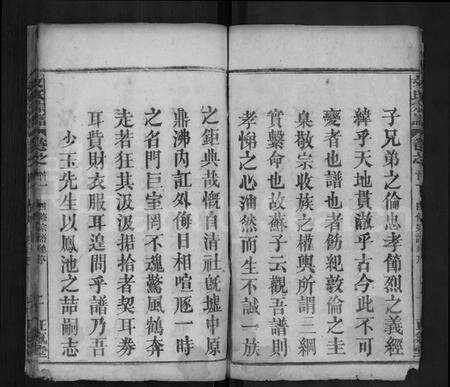 子兄弟之倫忠孝節烈之義經
緯乎天地貫澈乎古今此不可
變者也譜也者飭紀敦倫之圭
臬敬宗收族之權輿所謂三綱
實繫命也故蘇子云觀吾譜則
孝悌之心油然而生不誠一族
之鉅典哉慨自清社既墟中原
鼎沸內訌外侮目相喧豗一時
之名門巨室罔不魂驚風鶴奔
走若狂其汲汲捃拾者契耳券
耳貲財衣服耳遑問乎譜乃吾
少玉先生以鳳池之喆嗣志